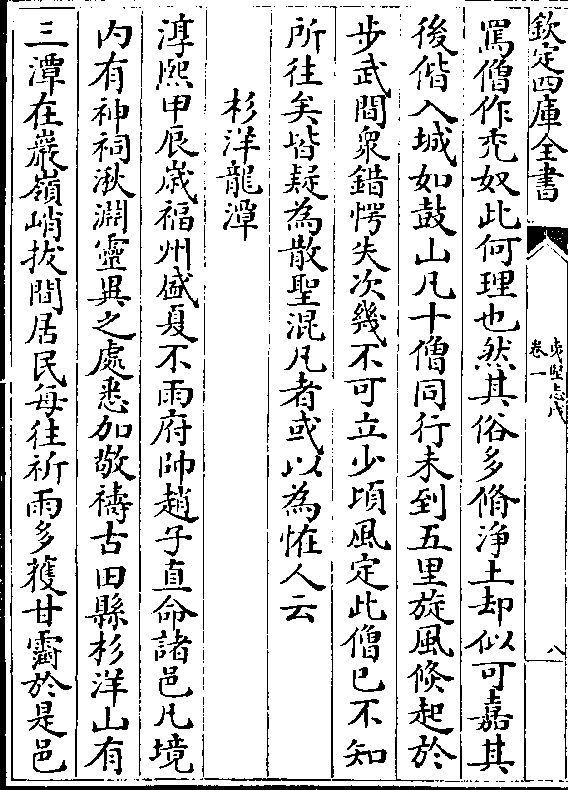 欽定四庫全書
夷堅志戊
卷一
八
罵僧作禿奴此何理也然其俗多脩淨土却似可嘉其
後偕入城如鼓山凡十僧同行未到五里旋風倐起於
步武間衆錯愕失次幾不可立少頃風定此僧已不知
所往矣皆疑為散聖混凡者或以為恠人云
杉洋龍潭
淳熙甲辰歲福州盛夏不雨府帥趙子直命諸邑凡境
内有神祠湫淵靈異之處悉加敬禱古田縣杉洋山有
三潭在巖嶺峭拔間居民每往祈雨多獲甘霔於是邑